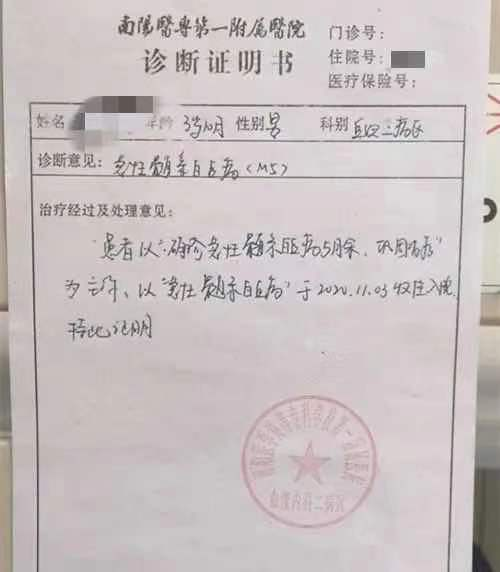 南陽醫專第一附属醫院
诊断证明书
门诊号:
住院号:
医疗保险号:
姓名 年龄 3岁10月 性别 男 科别 血液二病区
诊断意见: 急性髓系白血病(M5)
治疗经过及处理意见:
"患者以"确诊急性髓系白血病5月余,巩固治疗"
为主诉,以"急性髓系白血病"于2020.11.03收住入院.
特此证明
南阳医学高等专科学校第一附属医院
血液内科二病区